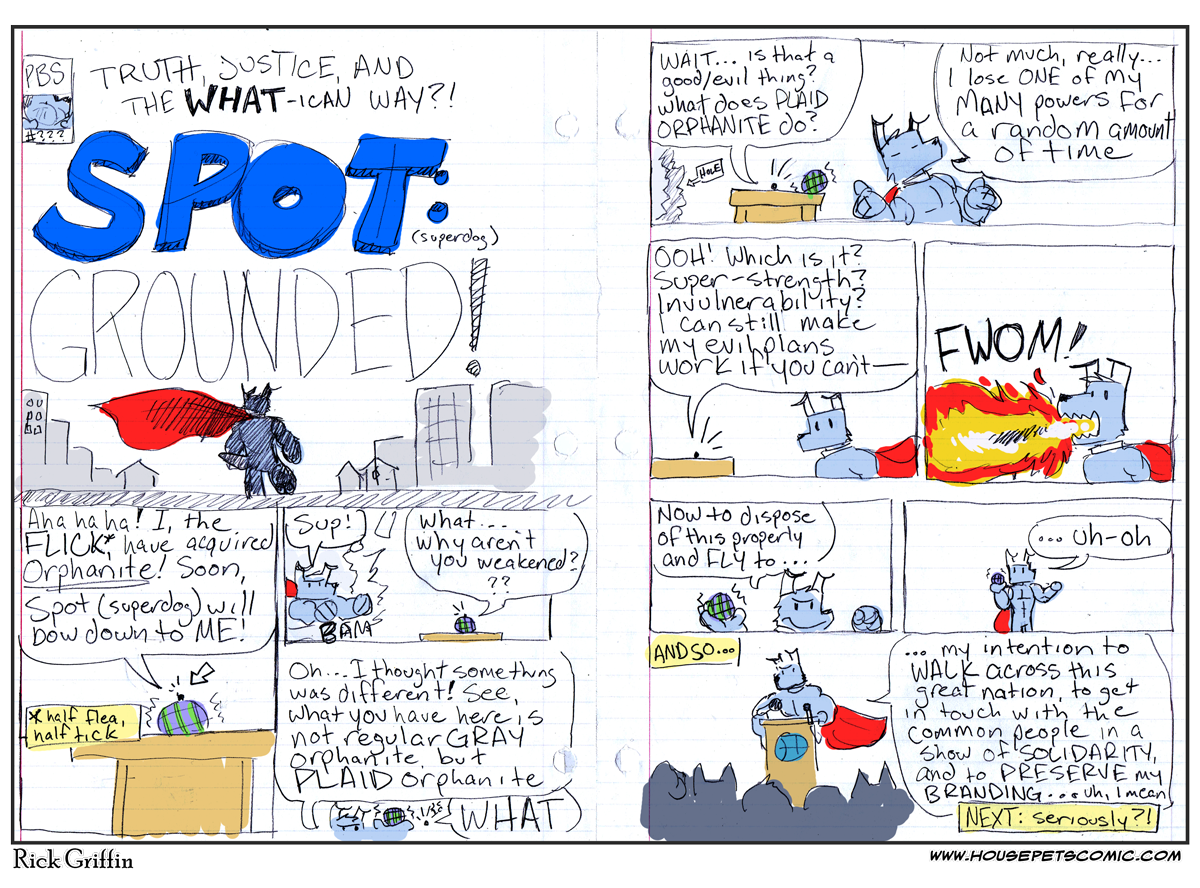 PBS
#???
TRUTH, JUSTICE, AND
THE WHAT-ICAN WAY?!
SPOT:
(superdog)
GROUNDED!
Aha ha ha! I, the
FLICK*, have acquired
Orphanite! Soon,
Spot (superdog) will
bow down to ME!
*half flea,
half tick
Sup!
BAM
What...
why aren't
you weakened?
??
Oh... I thought something
was different! See,
what you have here is
not regular GRAY
orphanite, but
PLAID orphanite
WHAT
WAIT... is that a
good/evil thing?
what does PLAID
ORPHANITE do?
HOLE
Not much, really...
I lose ONE of my
MANY powers for
a random amount
of time
OOH! Which is it?
Super-strength?
Invulnerability?
I can still make
my evil plans
work if you can't—
FWOM!
Now to dispose
of this properly
and FLY to...
... uh-oh
AND SO...
... my intention to
WALK across this
great nation, to get
in touch with the
common people in a
show of SOLIDARITY,
and to PRESERVE my
BRANDING... uh, I mean
NEXT: seriously?!
Rick Griffin
WWW.HOUSEPETSCOMIC.COM